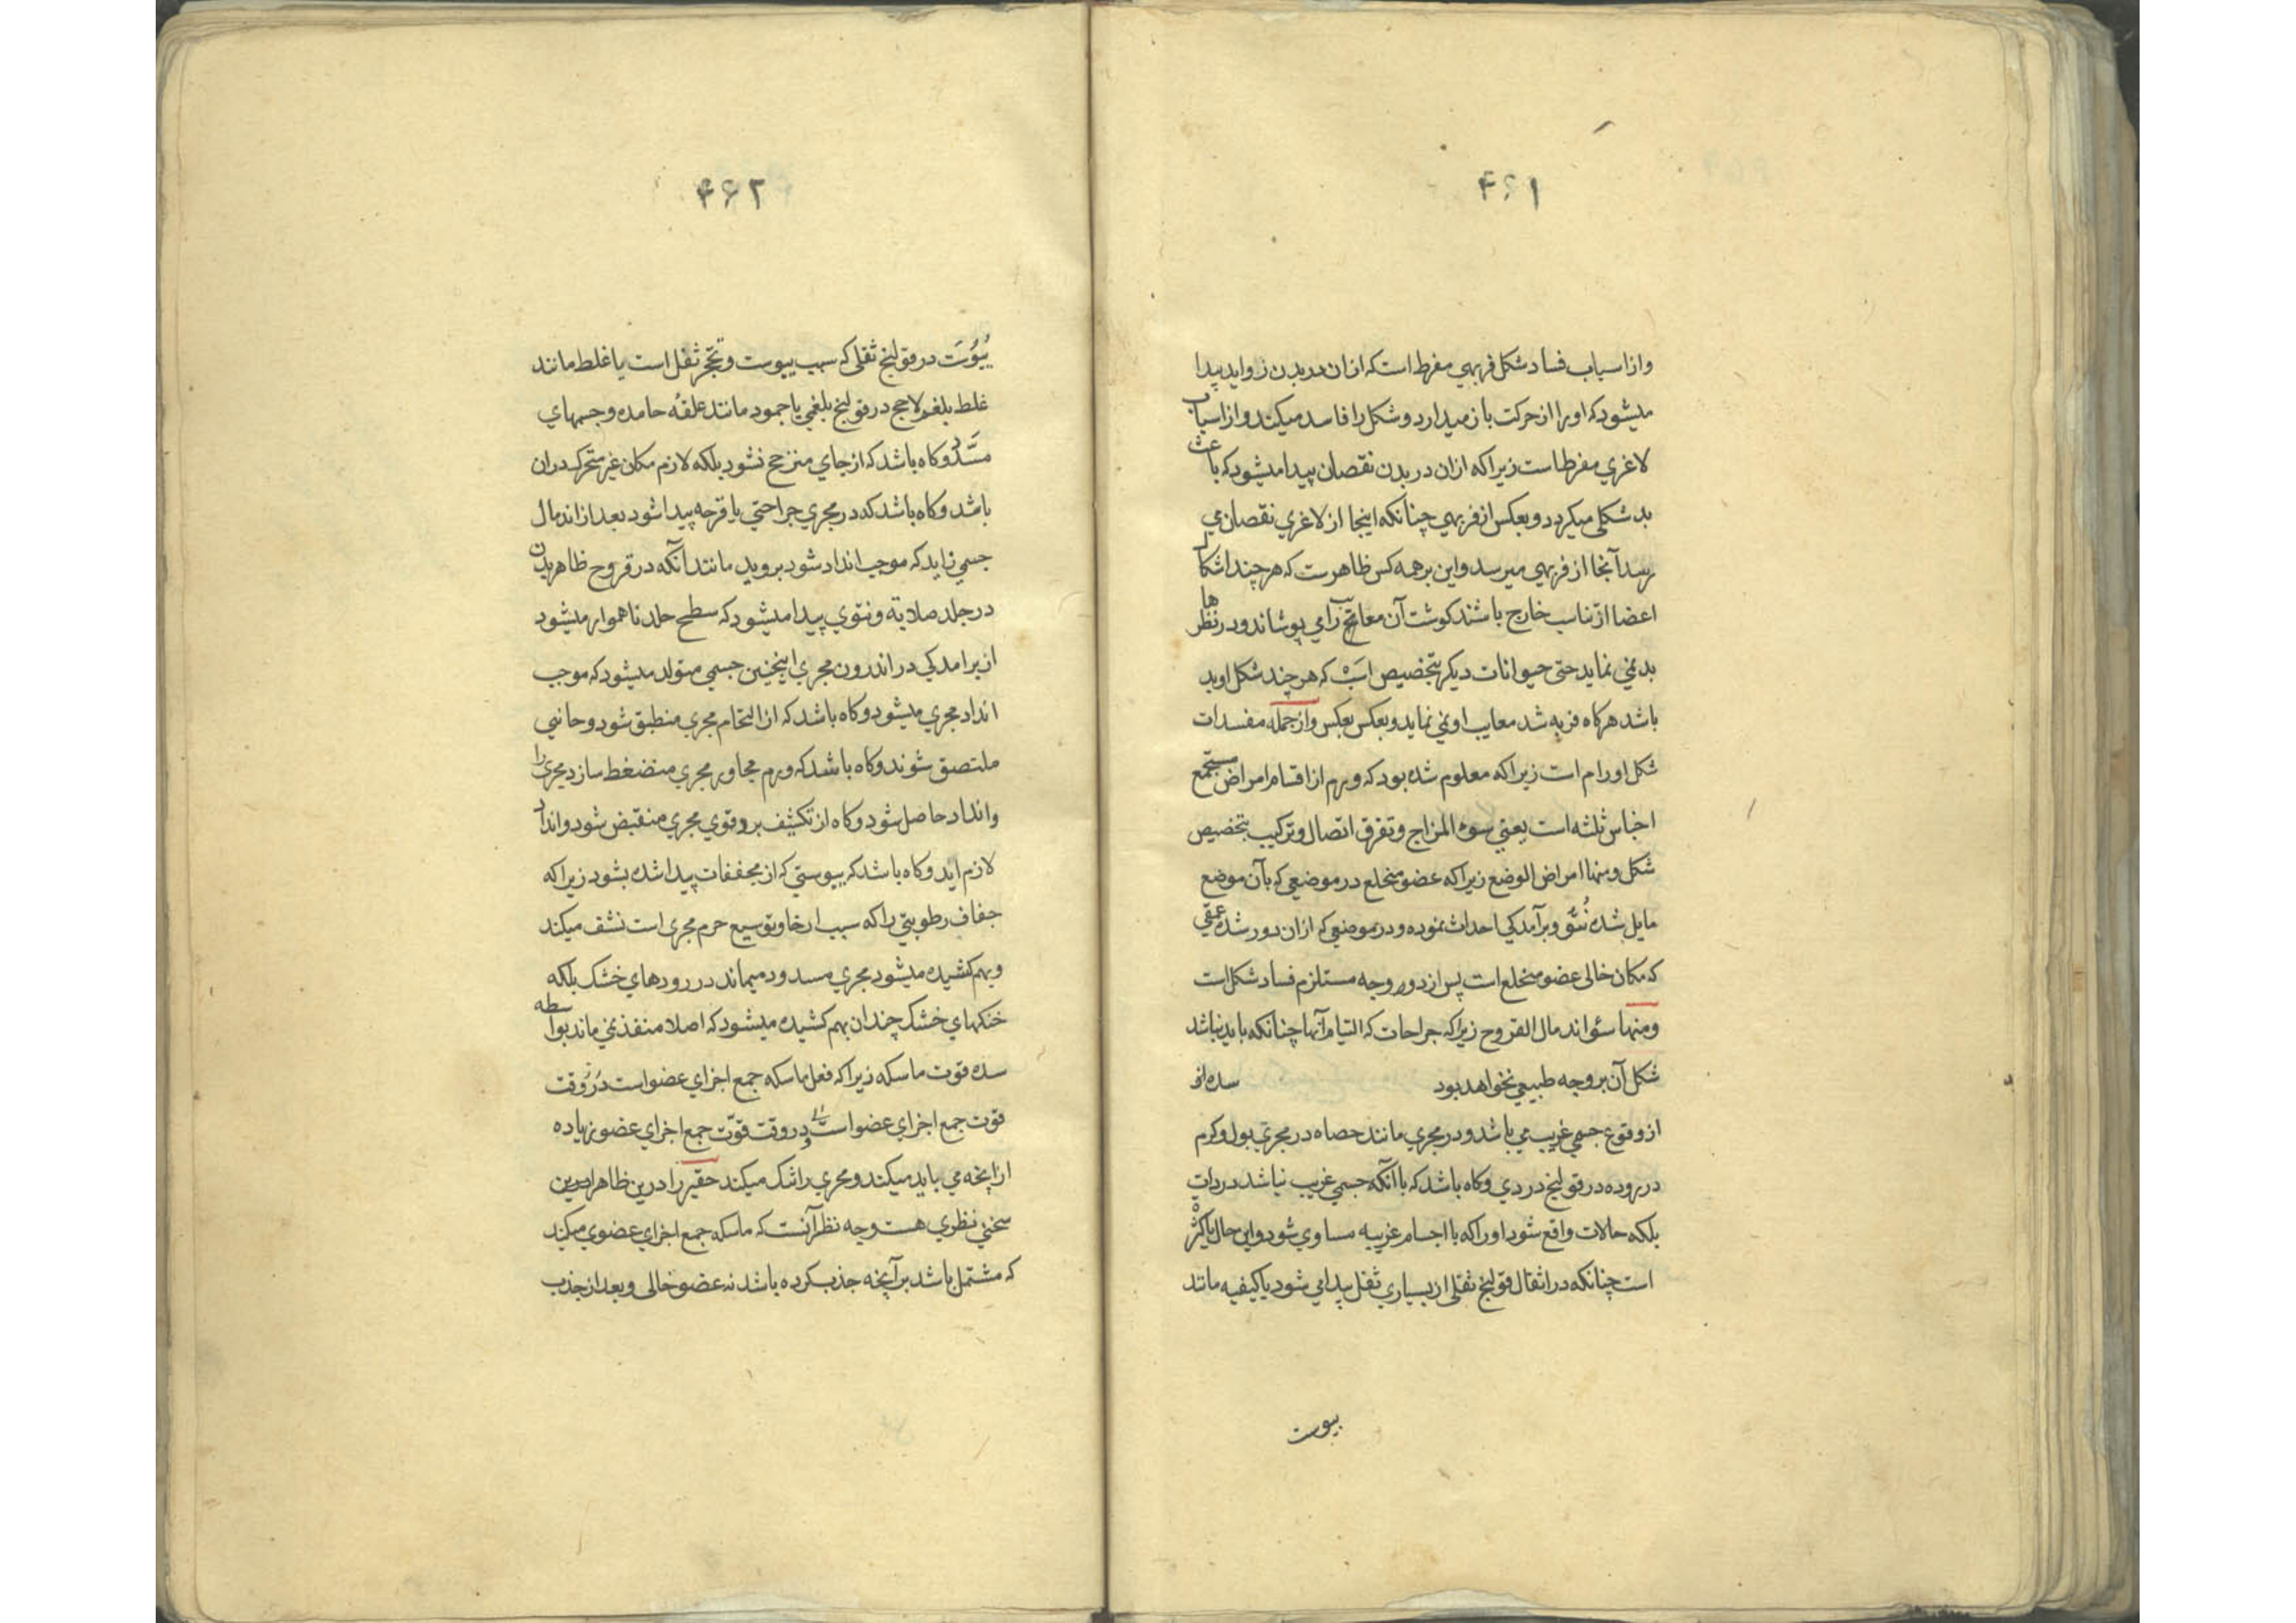 ۴۶۱
واز اسباب فساد شکل فربهی مفرط است که ازان در بدن زواید پیدا
میشود که اورا از حرکت باز میدارد و شکل را فاسد میکند واز اسباب
لاغري مفرط است زیرا که ازان در بدن نقصان پیدا میشود که باعث
بد شکلی میکردد و بعکس از فربهی چنانکه اینجا از لاغري نقصان می
رسد آنجا از فربهی میرسد واین بر همه کس ظاهرست که هر چند اشکال
اعضا از تناسب خارج باشند کوشت آن معایب را می پوشاند ودر نظرها
بد نمی نماید حتی حیوانات دیکر بتخصیص اسپ که هر چند شکل او بد
باشد هرکاه فربه شد معایب او نمی نماید و بعکس بعکس واز جمله مفسدات
شکل اورام است زیرا که معلوم شده بود که ورم از اقسام امراض مستجمع
اجناس ثلثه است یعنی سوء المزاج و تفرق اتصال و ترکیب بتخصیص
شکل ومنها امراض الوضع زیرا که عضو منخلع در موضعی که بآن موضع
مایل شده نتو و برآمدکی احداث نموده و در موضعی که ازان دور شده عمقی
که مکان خالی عضو منخلع است پس از دو وجه مستلزم فساد شکل است
ومنها سؤ اندمال القروح زیرا که جراحات که التیام آنها چنانکه باید نباشد
شکل آن بر وجه طبیعی نخواهد بود سده از
از وقوع جسمی غریب می باشد و در مجري مانند حصاه در مجري بول و کرم
در روده در قولنج دردي وکاه باشد که با آنکه جسمی غریب نباشد در ذات
بلکه حالات واقع شود اورا که با اجسام غریبه مساوي شود واین حال یا کثرة
است چنانکه در اثقال قولنج ثقلی از بسیاري ثفل پیدا می شود یا کیفیه مانند
یبوست
۴۶۲
یبوست در قولنج ثقلی که سبب یبوست و تحجر ثقل است یا غلظ مانند
غلظ بلغم لاحج در قولنج بلغمی یا جمود مانند علقه جامده و جسمهاي
مسدد وکاه باشد که از جاي منزعج نشود بلکه لازم مکان غیر متحرک دران
باشد وکاه باشد که در مجري جراحتی یا قرحه پیدا شود بعد از اندمال
جسمی زاید که موجب انداد شود بروید مانند آنکه در قروح ظاهر بدن
در جلد صلابة و نتوي پیدا میشود که سطح جلد ناهموار میشود
از برامدکی در اندرون مجري اینچنین جسمی متولد میشود که موجب
انداد مجري میشود وکاه باشد که از التحام مجري منطبق شود و جانبی
ملتصق شوند وکاه باشد که ورم مجاور مجري منضغط سازد مجري را
وانداد حاصل شود وکاه از تکثیف برد قوي مجري منقبض شود وانداد
لازم اید وکاه باشد که یبوستی که از مجففات پیدا شده بشود زیرا که
جفاف رطوبتی را که سبب ارخا و توسیع جرم مجري است نشف میکند
وبهم کشیده میشود مجري مسدود میماند در رودهاي خشک بلکه
خنکهاي خشک چندان بهم کشیده میشود که اصلا منفذ نمی ماند بواسطه
سده قوت ماسکه زیرا که فعل ماسکه جمع اجزاي عضو است در وقت
قوت جمع اجزاي عضو است ودر وقت قوّت جمع اجزاي عضو زیاده
ازانچه می باید میکند ومجري را تنک میکند حقیر را درین ظاهرا درین
سخن نظري هست وجه نظر آنست که ماسکه جمع اجزاي عضوي میکند
که مشتمل باشد بر آنچه جذب کرده باشد نه عضو خالی وبعد از جذب